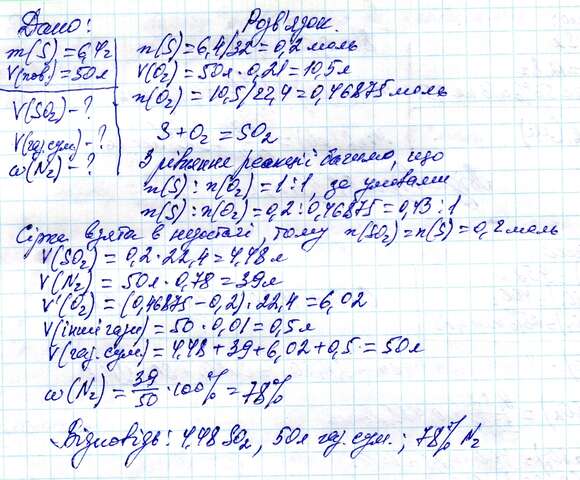 Дано:
m(S) = 6,4г
V(пов.) = 50л
V(SO₂) - ?
V(газ. сум.) - ?
ω(N₂) - ?
Розв'язок.
n(S) = 6,4/32 = 0,2 моль
V(O₂) = 50л · 0,21 = 10,5л
n(O₂) = 10,5/22,4 = 0,46875 моль
S + O₂ = SO₂
З рівняння реакції бачимо, що
n(S) : n(O₂) = 1 : 1, за умовами
n(S) : n(O₂) = 0,2 : 0,46875 = 0,43 : 1
Сірка взята в недостачі, тому n(SO₂) = n(S) = 0,2 моль
V(SO₂) = 0,2 · 22,4 = 4,48 л
V(N₂) = 50л · 0,78 = 39л
V'(O₂) = (0,46875 - 0,2) · 22,4 = 6,02
V(інші гази) = 50 · 0,01 = 0,5л
V(газ. сум) = 4,48 + 39 + 6,02 + 0,5 = 50л
ω(N₂) = 39/50 · 100% = 78%
Відповідь: 4,48 SO₂, 50л газ. сум. ; 78% N₂